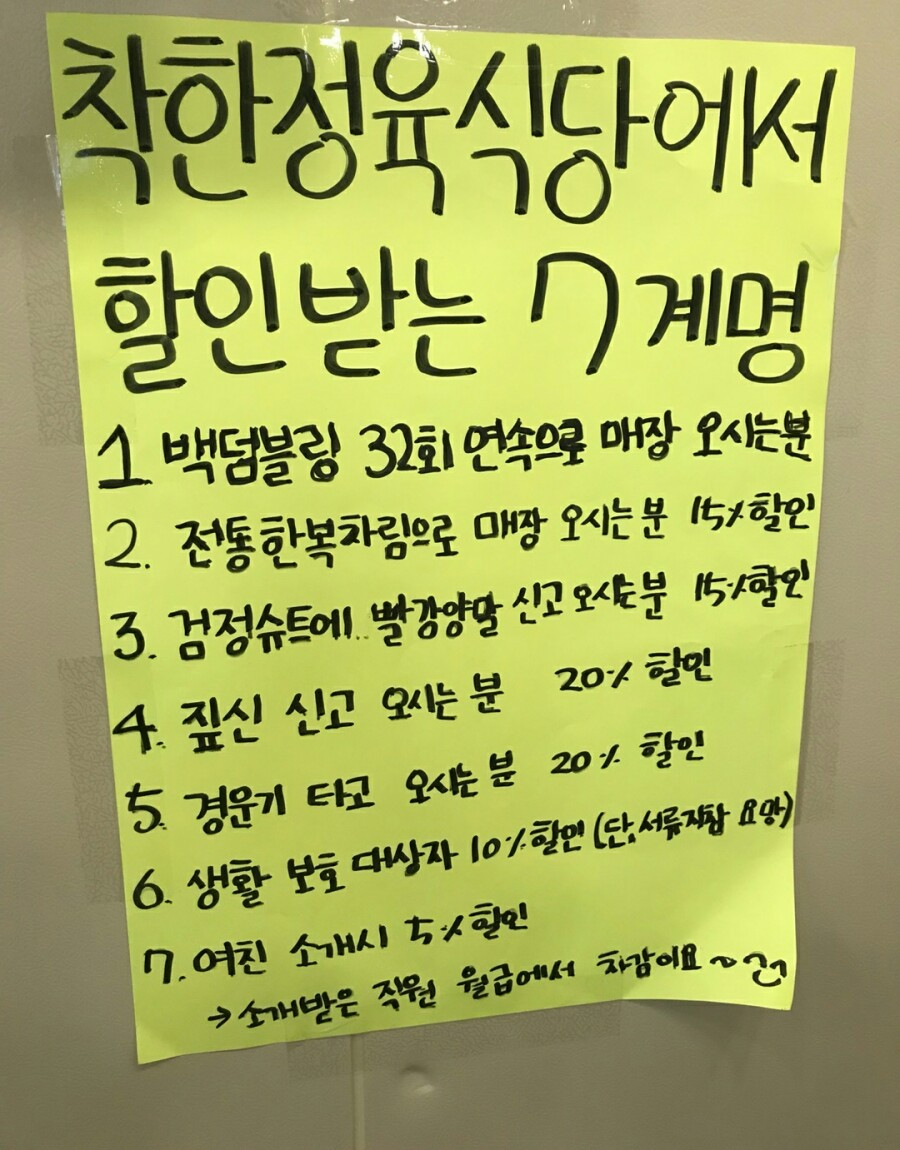 착한정육식당에서
할인받는 7계명
1 백덤블링 32회 연속으로 매장 오시는분
2. 전통한복차림으로 매장 오시는분 15% 할인
3. 검정슈트에.. 빨강양말 신고 오시는분 15% 할인
4. 짚신 신고 오시는 분 20% 할인
5. 경운기 타고 오시는 분 20% 할인
6. 생활 보호 대상자 10% 할인 (단, 서류지참 요망)
7. 여친 소개시 5% 할인
→ 소개받은 직원 월급에서 차감이요~